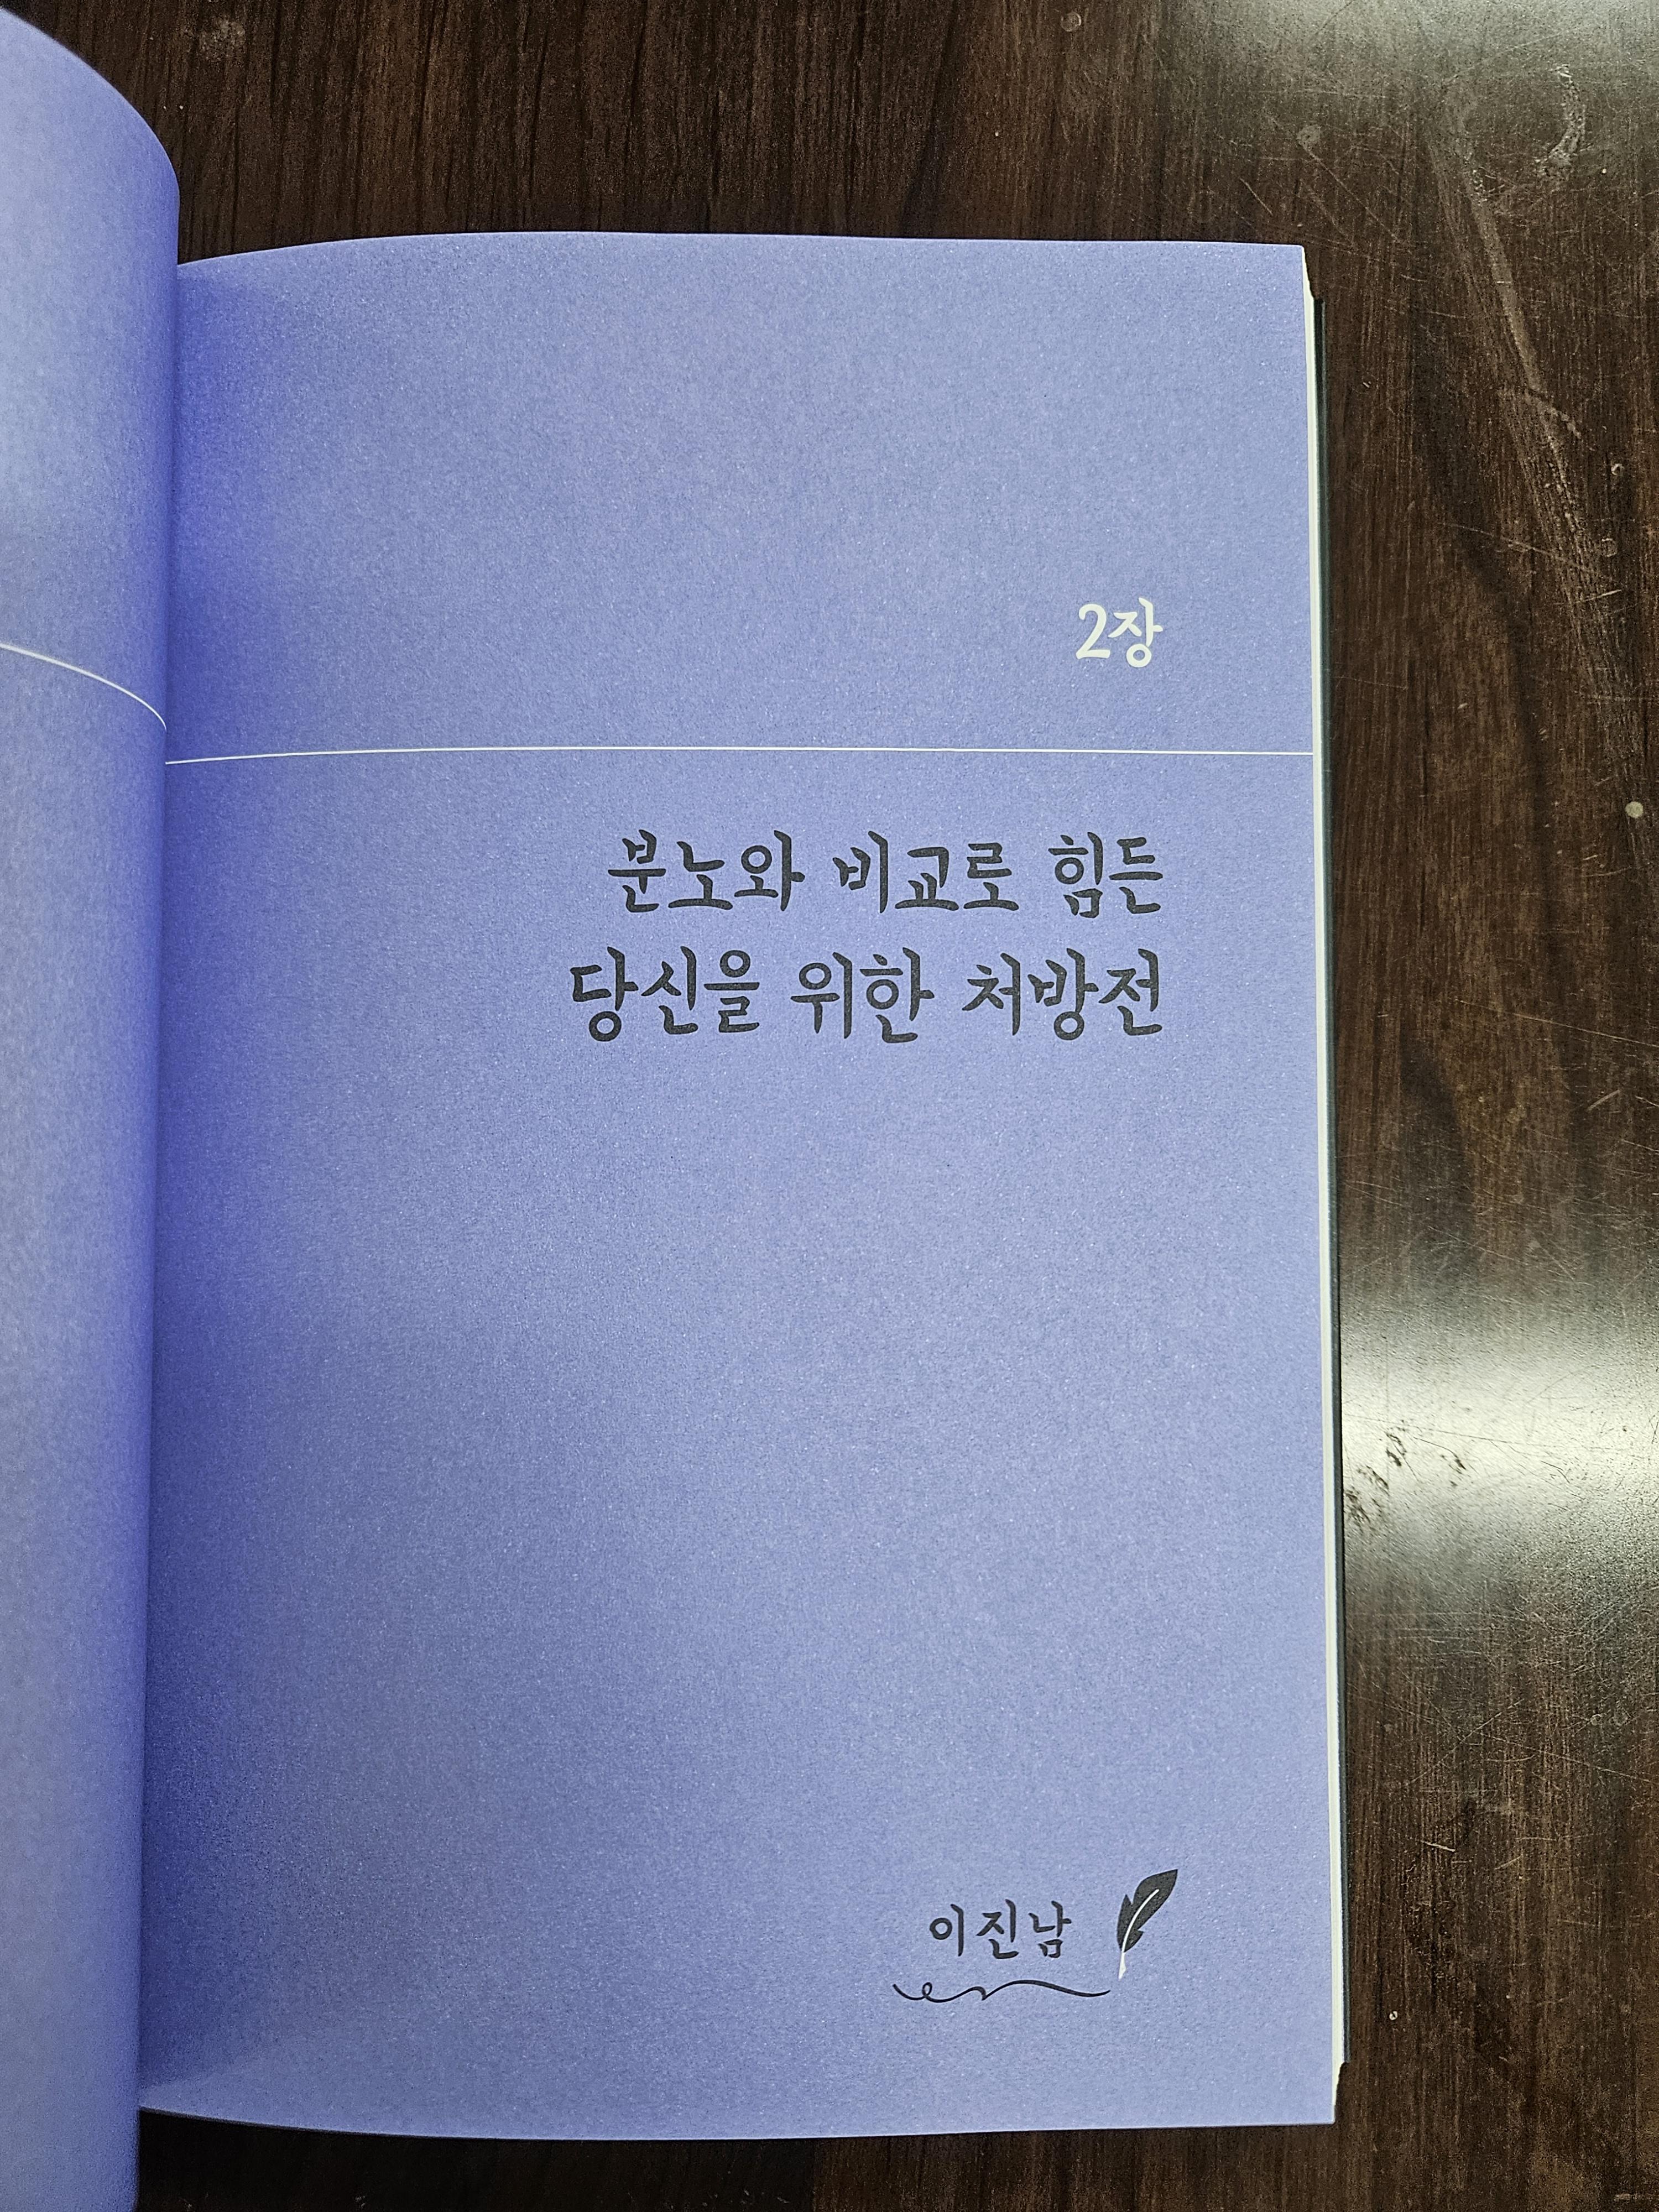 2장
분노와 비교로 힘든
당신을 위한 처방전
이진남